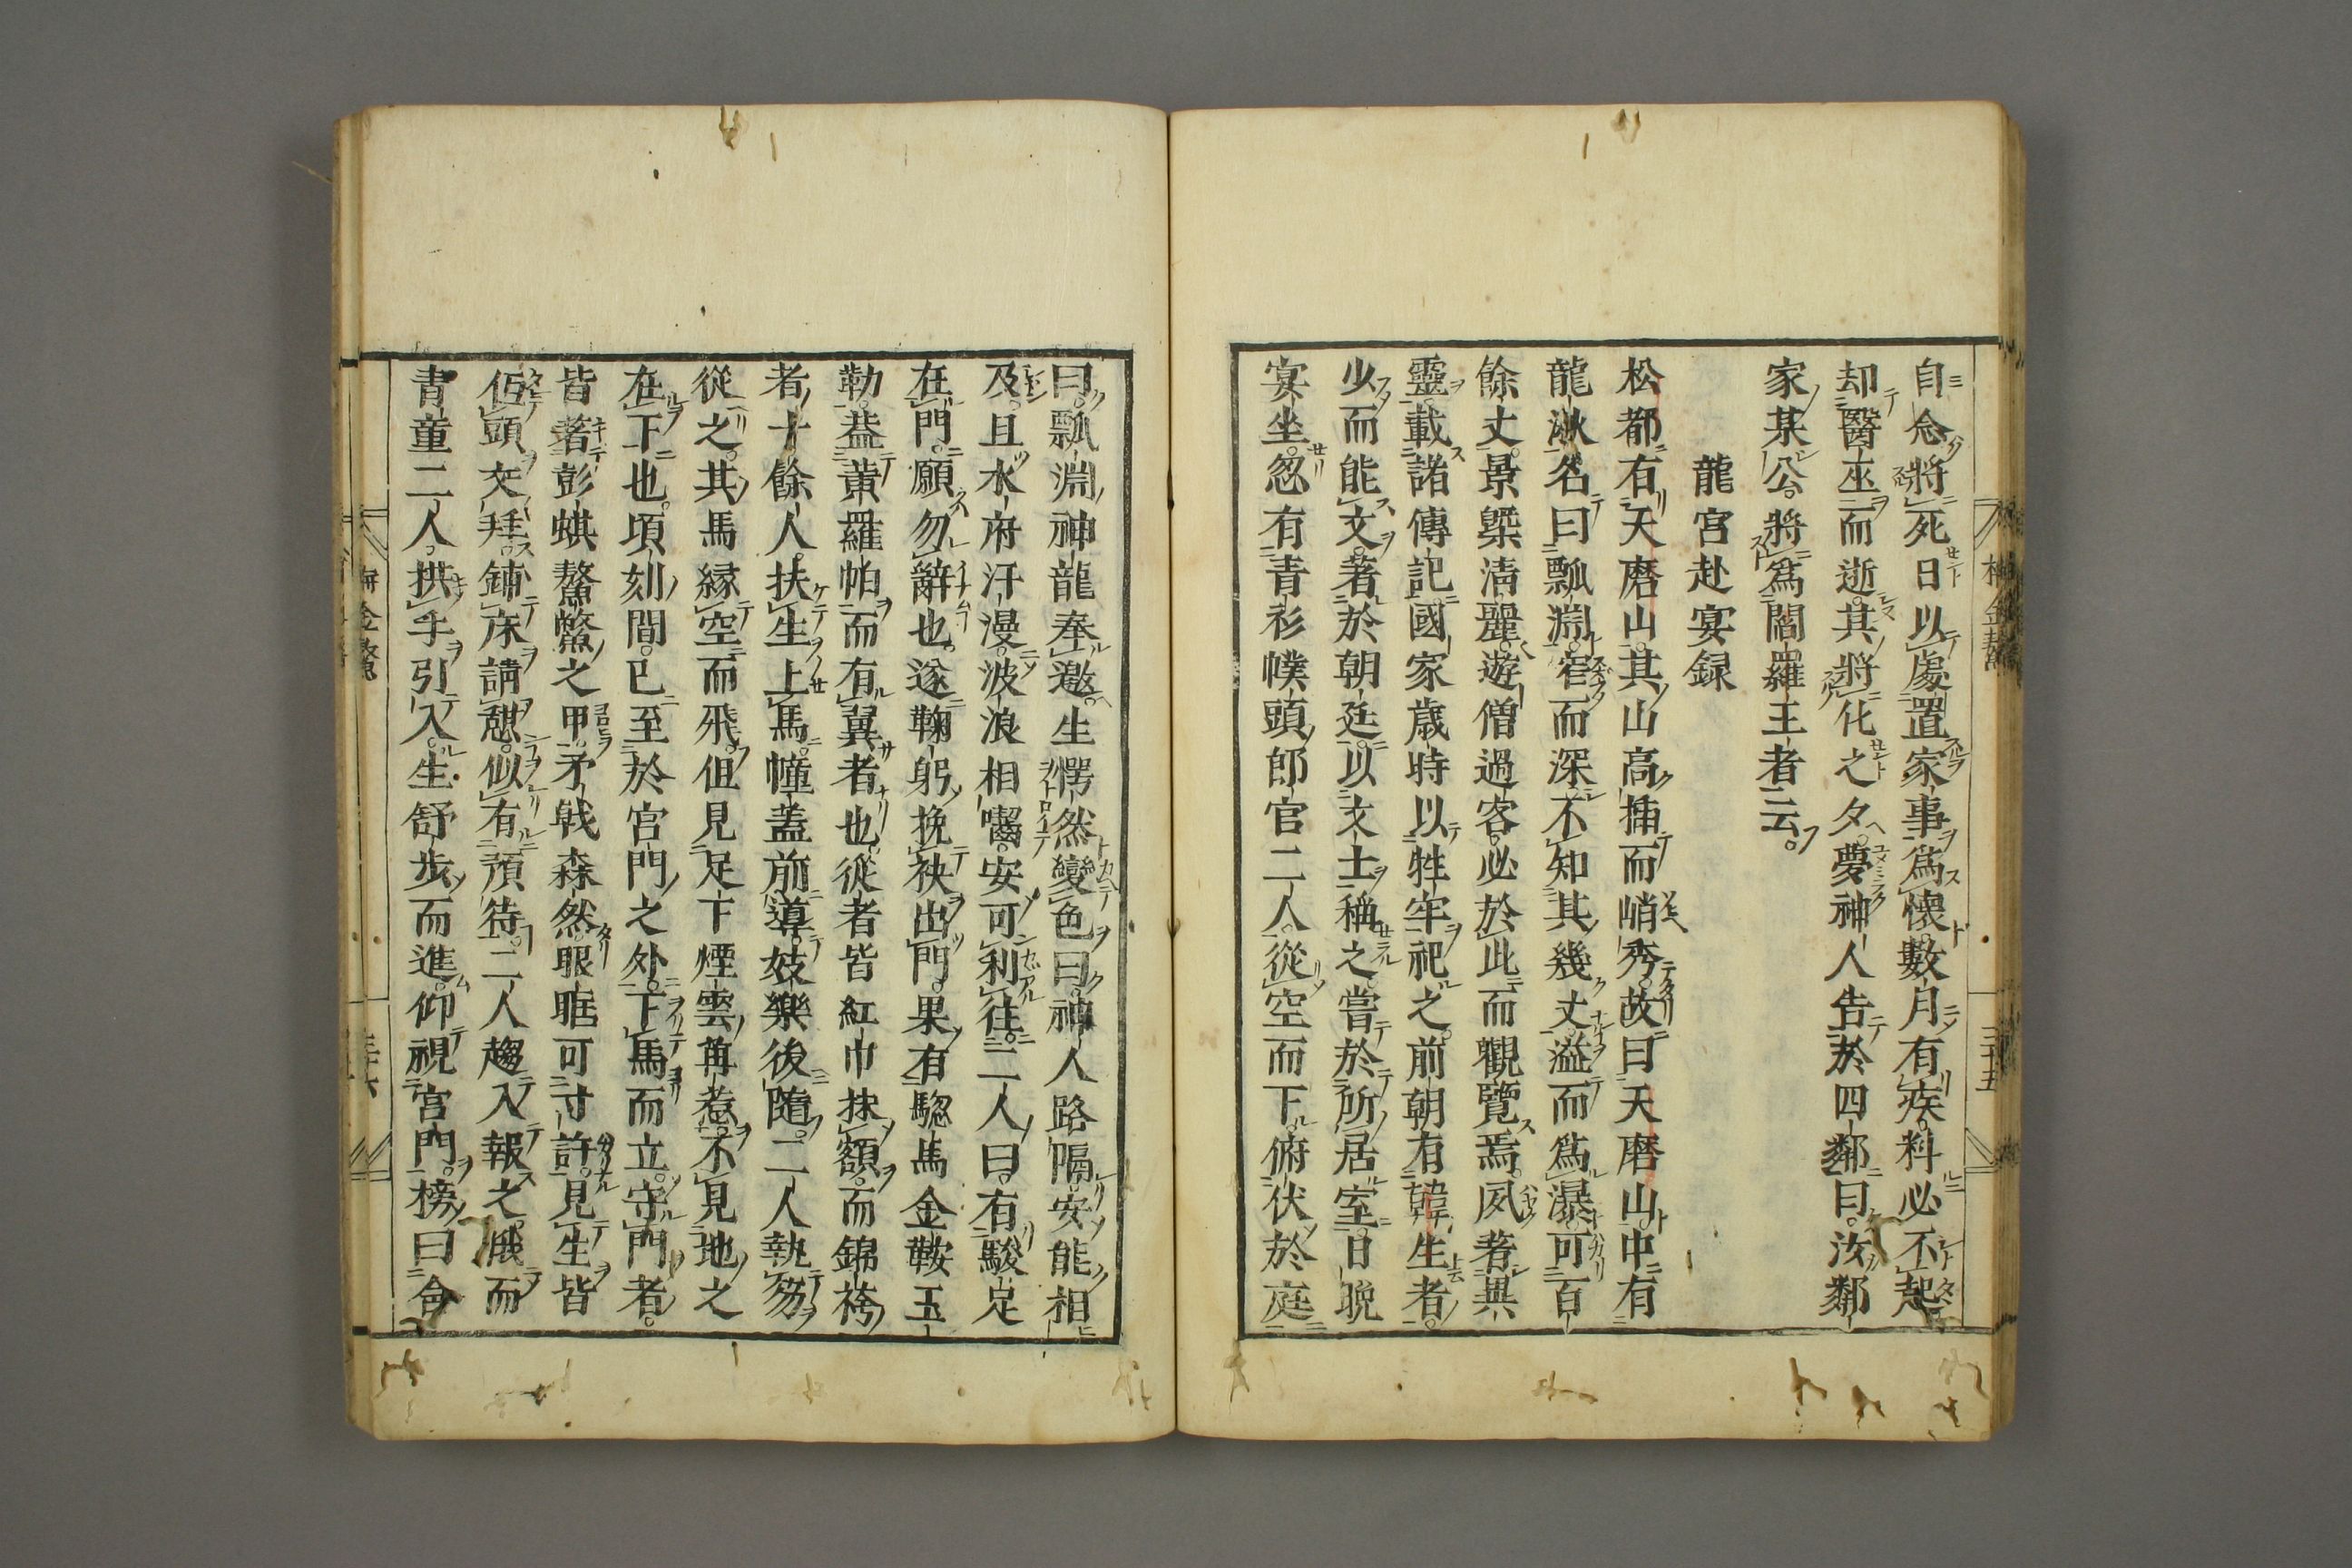 自念將死日以處置家事爲懷數月有疾料必不起
却醫巫而逝其將化之夕夢神人告於四鄰曰汝鄰
家某公將爲閻羅王者云
龍宮赴宴録
松都有天磨山其山高插而峭秀故曰天磨山中有
龍湫名曰瓢淵窄而深不知其幾丈溢而爲瀑可百
餘丈景槩淸麗遊僧過客必於此而觀覽焉夙著異
靈載諸傳記國家歲時以牲牢祀之前朝有韓生者
少而能文著於朝廷以文士稱之嘗於所居室日晩
宴坐忽有青衫幞頭郎官二人從空而下俯伏於庭
曰瓢淵神龍奉邀生愕然變色曰神人路隔安能相
及且水府汗漫波浪相囓安可利往二人曰有駿足
在門願勿辭也遂鞠躬挽袂出門果有驄馬金鞍玉
勒蓋黃羅帕而有翼者也從者皆紅巾抹額而錦袴
者十餘人扶生上馬幢蓋前導妓樂後隨二人執笏
從之其馬緣空而飛但見足下煙雲苒惹不見地之
在下也頃刻間已至於宮門之外下馬而立守門者
皆著彭蜞鰲鱉之甲矛戟森然眼眶可寸許見生皆
低頭交拜鋪床請憩似有預待二人趨入報之俄而
青童二人拱手引入生舒步而進仰視宮門榜曰含
梅金鰲
三十五
三十六